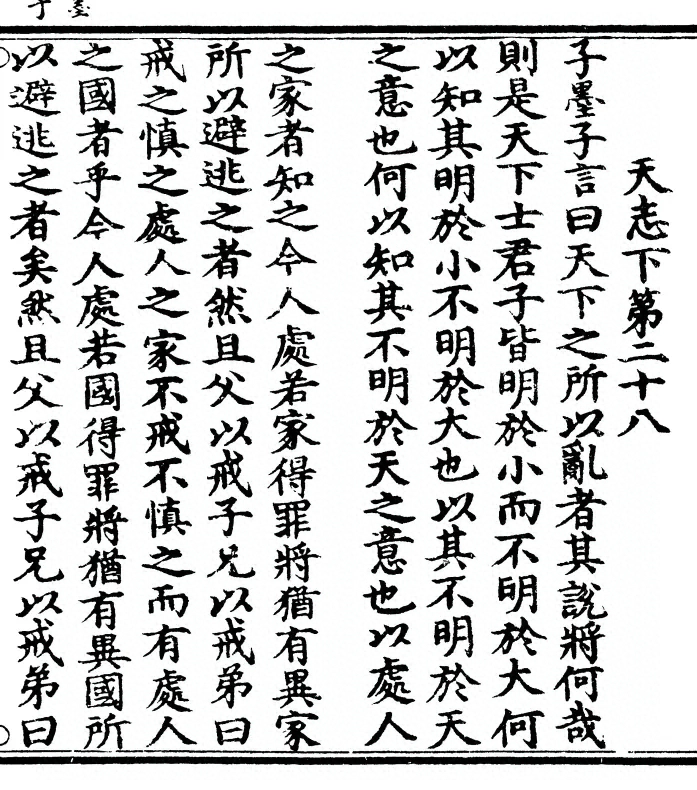 天志下第二十八
子墨子言曰天下之所以亂者其說將何哉
則是天下士君子皆明於小而不明於大何
以知其明於小不明於大也以其不明於天
之意也何以知其不明於天之意也以處人
之家者知之今人處若家得罪將猶有異家
所以避逃之者然且父以戒子兄以戒弟曰
戒之慎之處人之家不戒不慎之而有處人
之國者乎今人處若國得罪將猶有異國所
以避逃之者矣然且父以戒子兄以戒弟曰